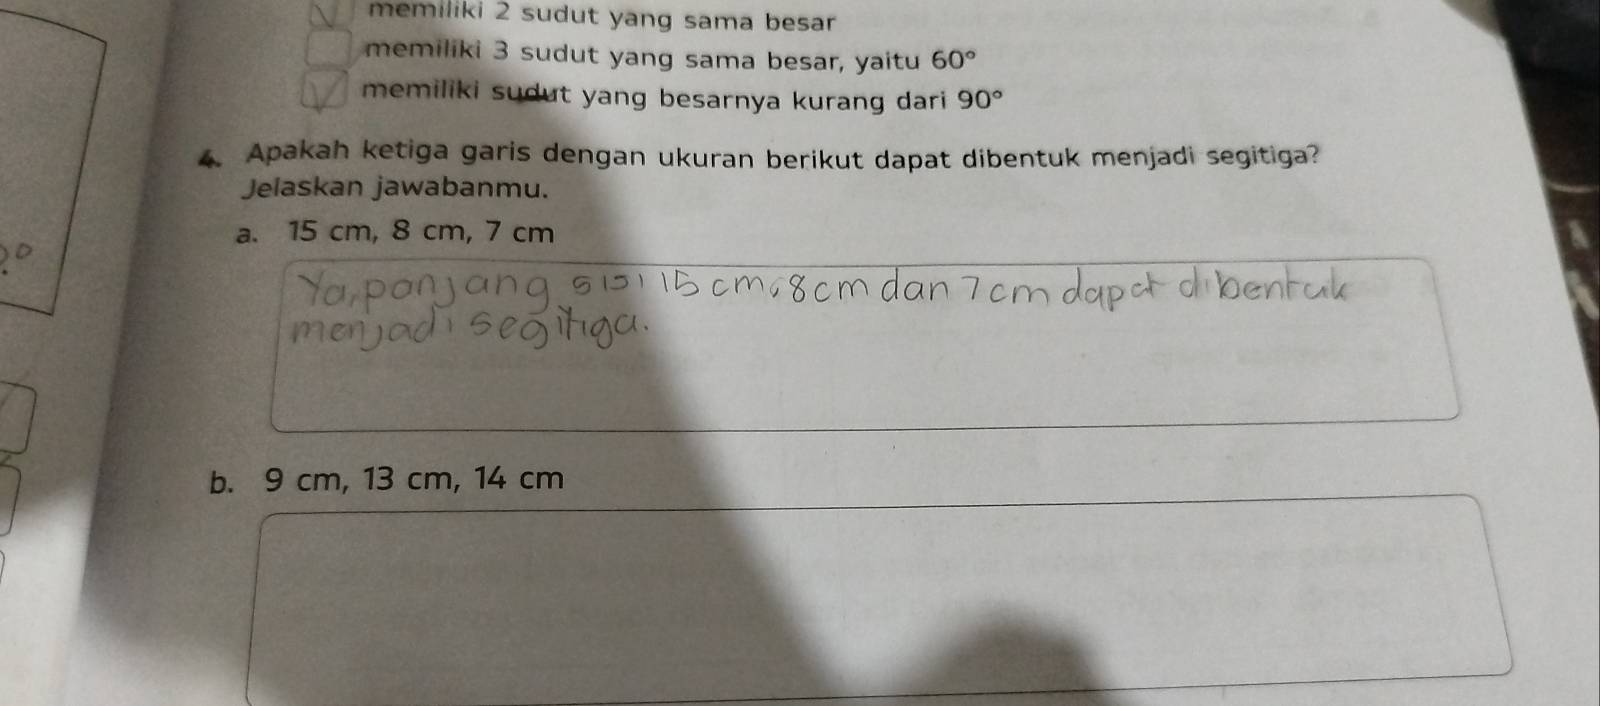 memiliki 2 sudut yang sama besar
memiliki 3 sudut yang sama besar, yaitu 60°
memiliki sudut yang besarnya kurang dari 90°
4. Apakah ketiga garis dengan ukuran berikut dapat dibentuk menjadi segitiga?
Jelaskan jawabanmu.
a. 15 cm, 8 cm, 7 cm
Ya, panjang sisi 15 cm, 8 cm dan 7 cm dapat dibentuk
menjadi segitiga.
b. 9 cm, 13 cm, 14 cm